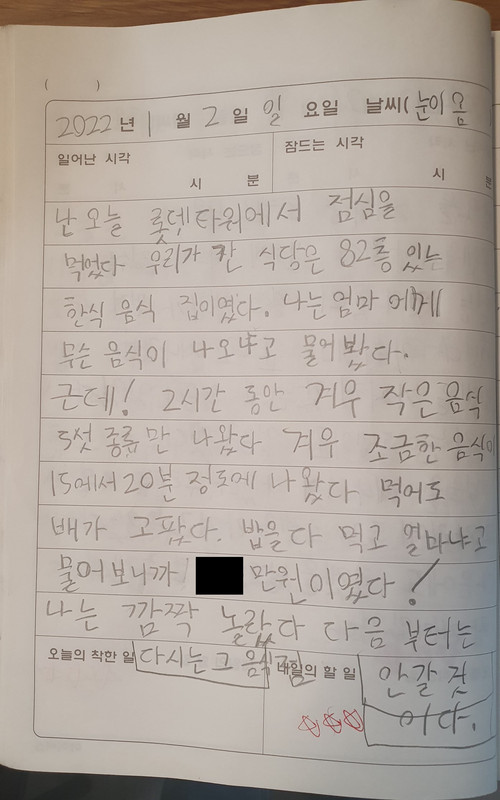 ( )
2022 년 1 월 2 일 일 요일 날씨( 눈이 옴
일어난 시각 시 분 잠드는 시각 시 분
난 오늘 롯덴타워에서 점심을
먹었다 우리가 간 식당은 82층 있는
한식 음식 집이였다. 나는 엄마 에게
무슨 음식이 나오냐고 물어 봤다.
근데! 2시간 동안 겨우 작은 음식
5섯 종류만 나왔다 겨우 조금한 음식이
15에서 20분 정도에 나왔다 먹어도
배가 고팠다. 밥을 다 먹고 얼마냐고
물어보니까 만원이였다!
나는 깜짝 놀랐다 다음 부터는
오늘의 착한 일 다시는 그 음식집 내일의 할 일 안갈 것
이다.